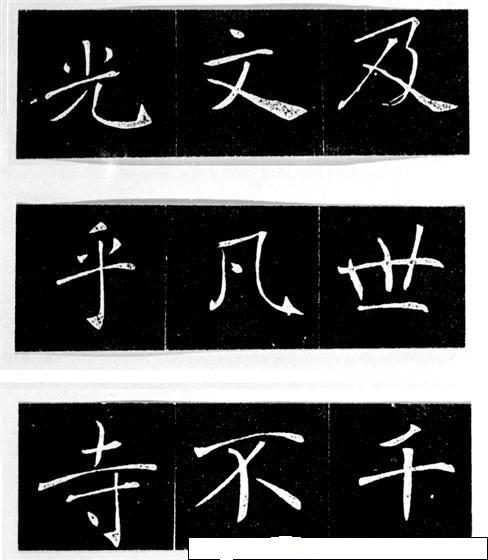 光文及
乎凡世
寺不千